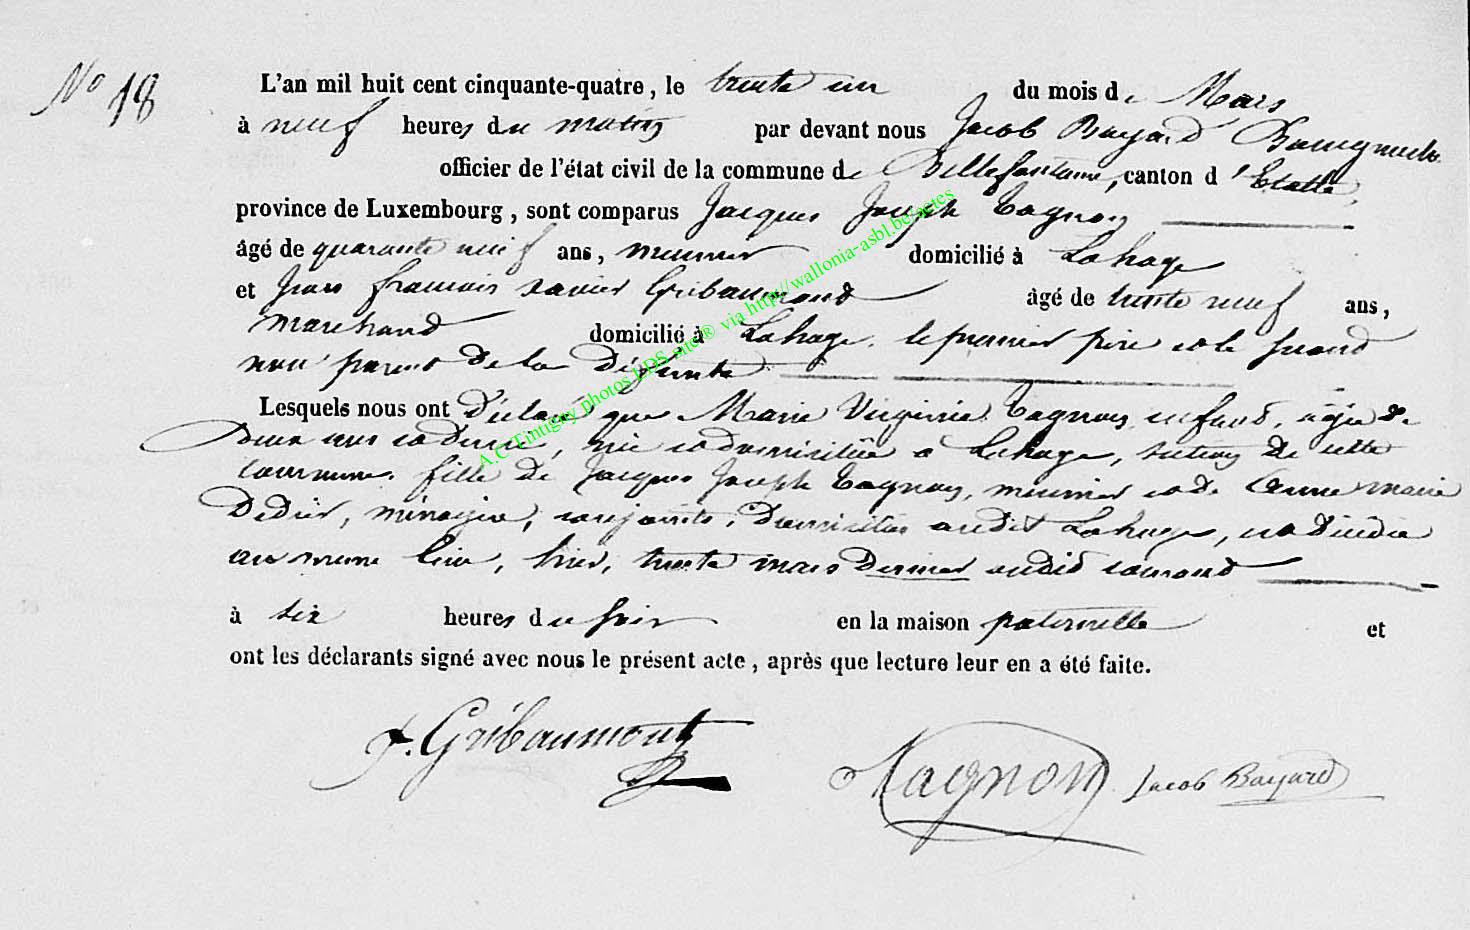 No 18
L'an mil huit cent cinquante-quatre, le trente un du mois de Mars
à neuf heures du matin par devant nous Jacob Bayard Bourgmestre
officier de l'état civil de la commune de Bellefontaine, canton d'Etalle,
province de Luxembourg, sont comparus Jacques Joseph Tagnon
âgé de quarante neuf ans, meunier domicilié à Lahage
et Jean françois xavier Gribaumont âgé de trente neuf ans,
marchand domicilié à Lahage. le premier père et le second
non parent de la Défunte
Lesquels nous ont Déclaré que Marie Virginie Tagnon, enfant, âgée de
Deux ans et demi, née et domiciliée à Lahage, section de cette
commune. fille de Jacques Joseph Tagnon, meunier et de Anne marie
Didier, ménagère, conjoints, Domiciliés audit Lahage, est décédée
au meme lieu, hier, trente mars Dernier audit courant
à six heures du soir en la maison paternelle et
ont les déclarants signé avec nous le présent acte, après que lecture leur en a été faite.
f. Gribaumont Tagnon Jacob Bayard
A.C. Tintigny photos LDS site® via http://wallonia-asbl.be/actes